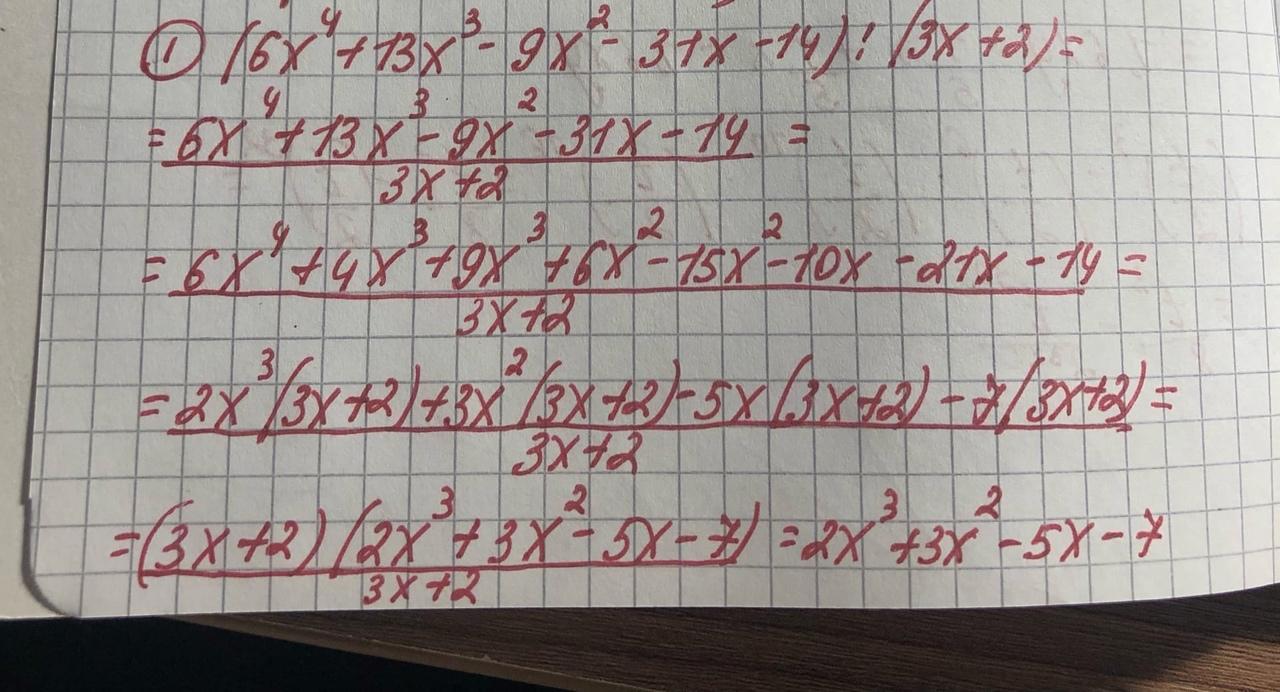 ① (6x⁴+13x³-9x²-31x-14):(3x+2)=
= 6x⁴+13x³-9x²-31x-14 =
3x+2
= 6x⁴+4x³+9x³+6x²-15x²-10x-21x-14 =
3x+2
= 2x³(3x+2)+3x²(3x+2)-5x(3x+2)-7(3x+2) =
3x+2
= (3x+2)(2x³+3x²-5x-7) = 2x³+3x²-5x-7
3x+2